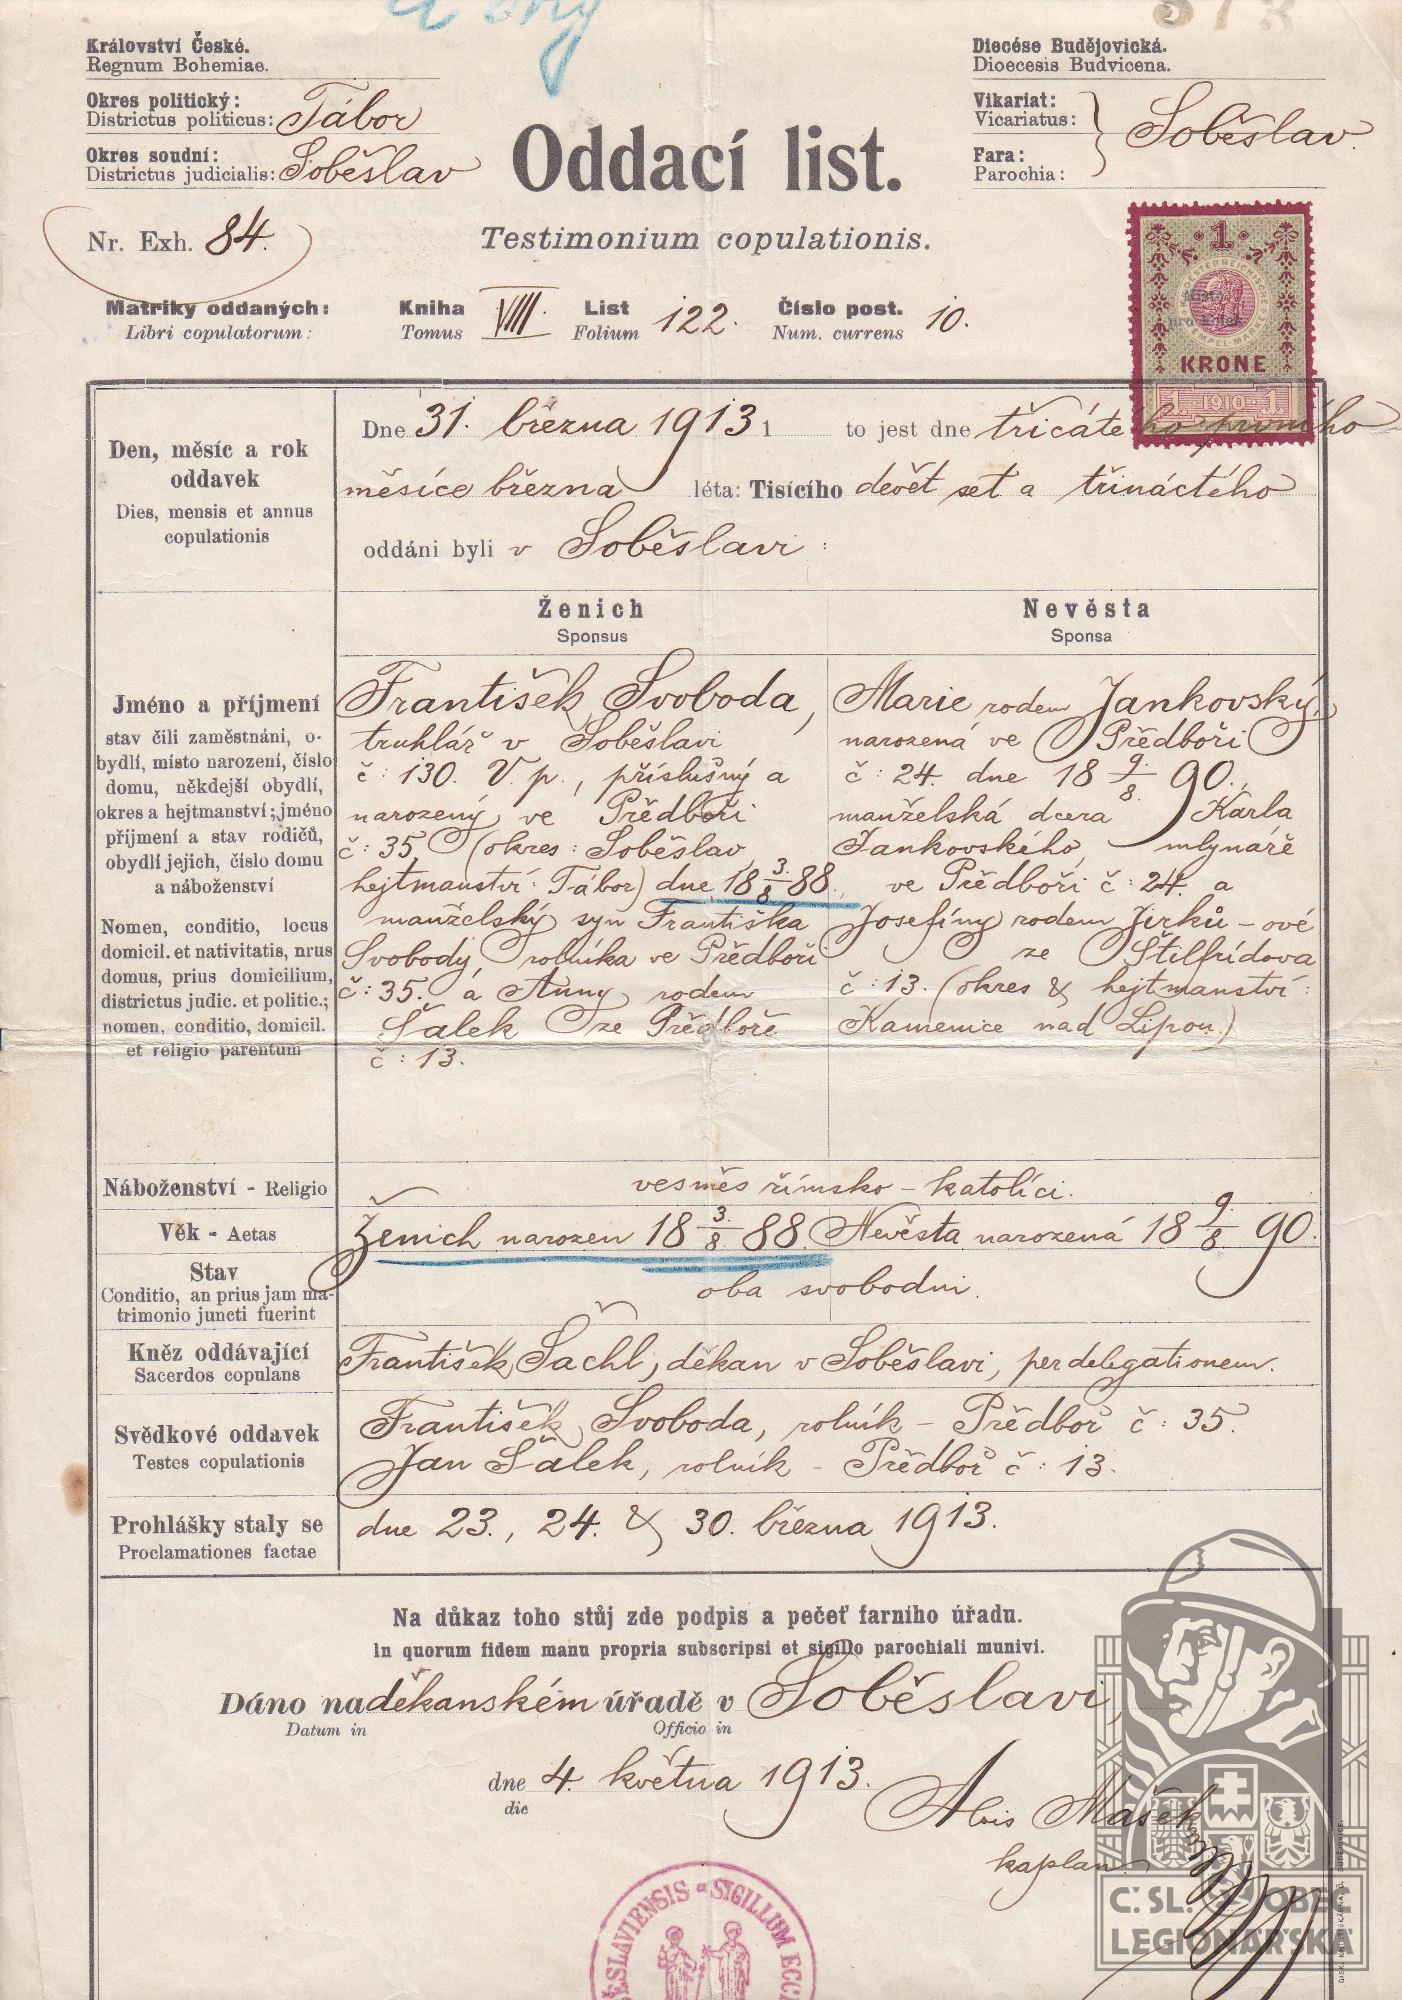 Království České.
Regnum Bohemiae.
Okres politický:
Districtus politicus: Tábor
Okres soudní:
Districtus judicialis: Soběslav
Nr. Exh. 84.
Diecése Budějovická.
Dioecesis Budvicena.
Vikariat:
Vicariatus:
Fara:
Parochia:
Soběslav.
Oddací list.
Testimonium copulationis.
Matriky oddaných: Kniha VIII. List 122. Číslo post. 10.
Libri copulatorum: Tomus Folium Num. currens
1
KRONE
1 1910 1
Den, měsíc a rok
oddavek
Dies, mensis et annus
copulationis
Dne 31. března 1913 1 to jest dne třicátého prvního
měsíce března léta: Tisícího devět set a třináctého
oddáni byli v Soběslavi:
Ženich
Sponsus
Nevěsta
Sponsa
Jméno a příjmení
stav čili zaměstnání, o-
bydlí, místo narození, číslo
domu, někdejší obydlí,
okres a hejtmanství; jméno
příjmení a stav rodičů,
obydlí jejich, číslo domu
a náboženství
Nomen, conditio, locus
domicil. et nativitatis, nrus
domus, prius domicilium,
districtus judic. et politic.;
nomen, conditio, domicil.
et religio parentum
František Svoboda,
truhlář v Soběslavi
č: 130. V. p., příslušný a
narozený ve Předboři
č: 35 (okres: Soběslav,
hejtmanství: Tábor) dne 18 3./8 88.,
manželský syn Františka
Svobody, rolníka ve Předboři
č: 35. a Anny rodem
Šálek ze Předboře
č: 13.
Marie rodem Jankovský,
narozená ve Předboři
č: 24. dne 18 9./8. 90.,
manželská dcera Karla
Jankovského, mlynáře
ve Předboři č: 24. a
Josefíny rodem Jirků-ové
ze Štilfridova
č: 13. (okres & hejtmanství:
Kamenice nad Lipou.)
Náboženství - Religio
vesměs římsko-katolíci.
Věk - Aetas
Ženich narozen 18 3./8 88. Nevěsta narozená 18 9./8 90.
Stav
Conditio, an prius jam ma-
trimonio juncti fuerint
oba svobodni.
Kněz oddávající
Sacerdos copulans
František Šachl, děkan v Soběslavi, per delegationem.
Svědkové oddavek
Testes copulationis
František Svoboda, rolník - Předboř č: 35.
Jan Šálek, rolník - Předboř č: 13.
Prohlášky staly se
Proclamationes factae
dne 23., 24. & 30. března 1913.
Na důkaz toho stůj zde podpis a pečeť farního úřadu.
In quorum fidem manu propria subscripsi et sigillo parochiali munivi.
Dáno na děkanském úřadě v Soběslavi,
Datum in Officio in
dne 4. května 1913.
die
Alois Mašek
kaplan.
ĚSLAVIENSIS - SIGILLUM ECC
Č. SL. OBEC
LEGIONÁŘSKÁ